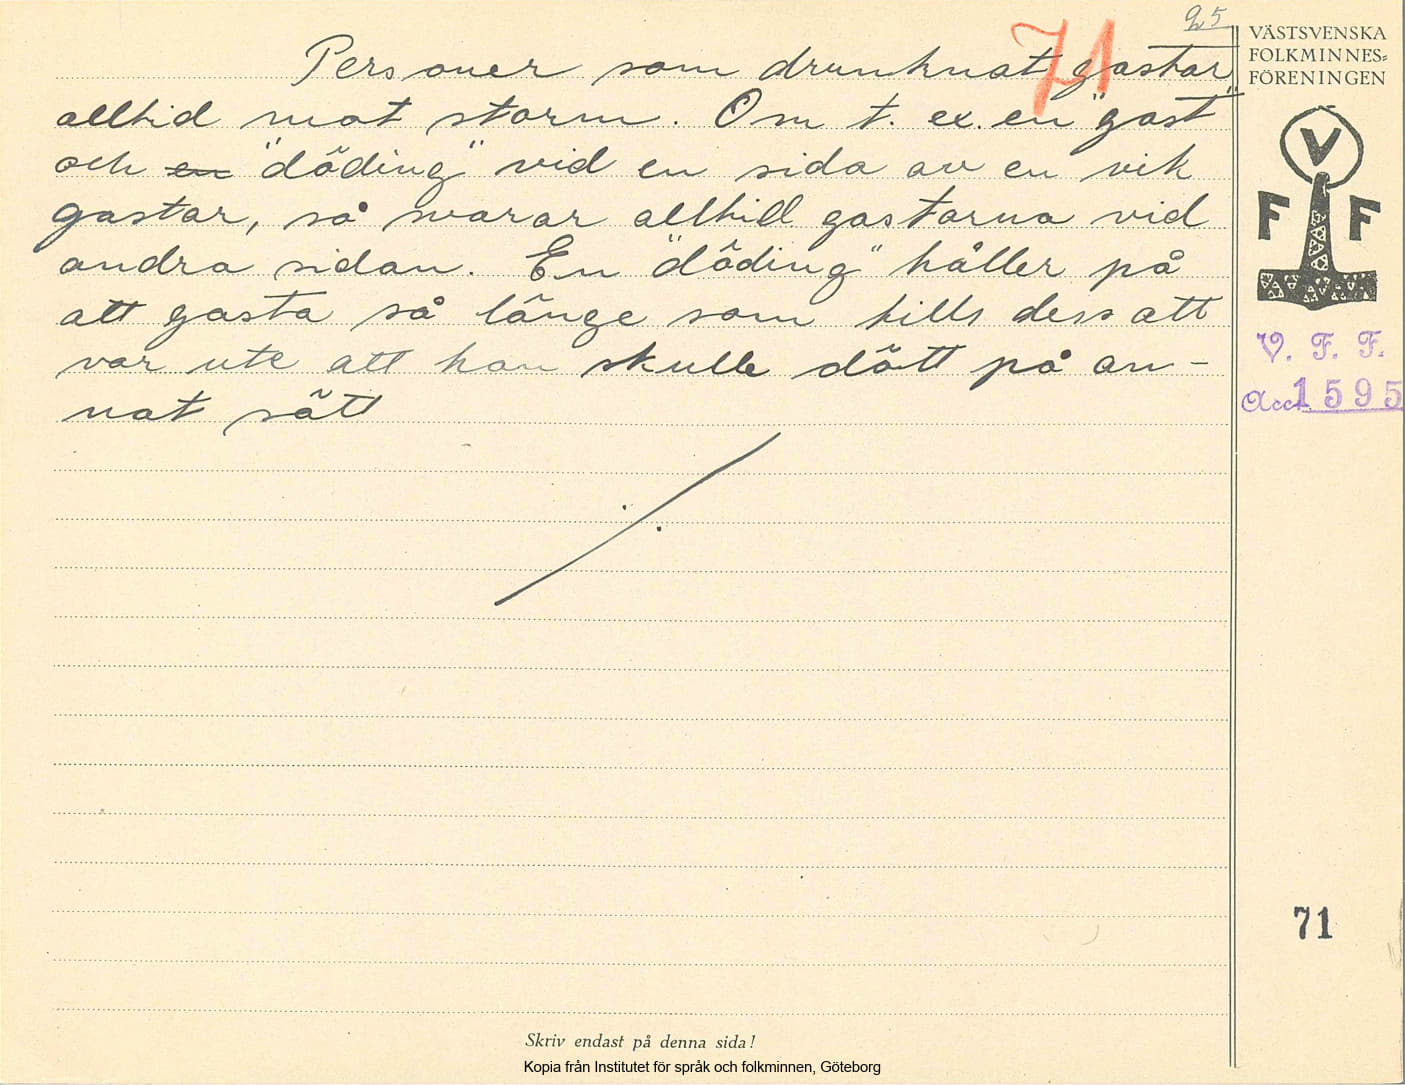 25
71
Personer som drunknat gastar
alltid mot storm. Om t. ex. en "gast"
och en "döding" vid en sida av en vik
gastar, så svarar alltid gastarna vid
andra sidan. En "döding" håller på
att gasta så länge som tills dess att
var ute att han skulle dött på an-
nat sätt
VÄSTSVENSKA
FOLKMINNES=
FÖRENINGEN
V
F F
V. F. F.
Acc. 1595
71
Skriv endast på denna sida!
Kopia från Institutet för språk och folkminnen, Göteborg